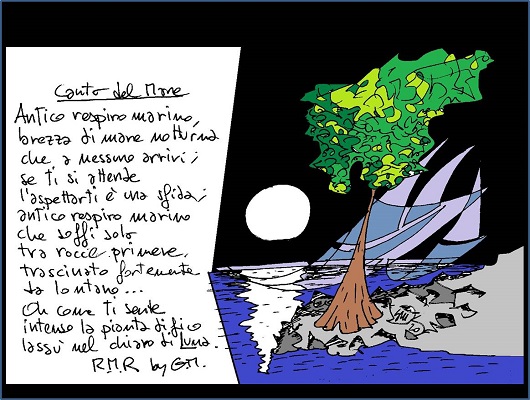 Canto del Mare
Antico respiro marino,
brezza di mare notturna
che a nessuno arrivi;
se ti si attende
l'aspettarti è una sfida;
antico respiro marino
che soffi solo
tra rocce primeve,
trascinato fortemente
da lontano...
Oh come ti sente
intenso la pianta di fico
lassù nel chiaro di Luna.
R.M.R by G.M.